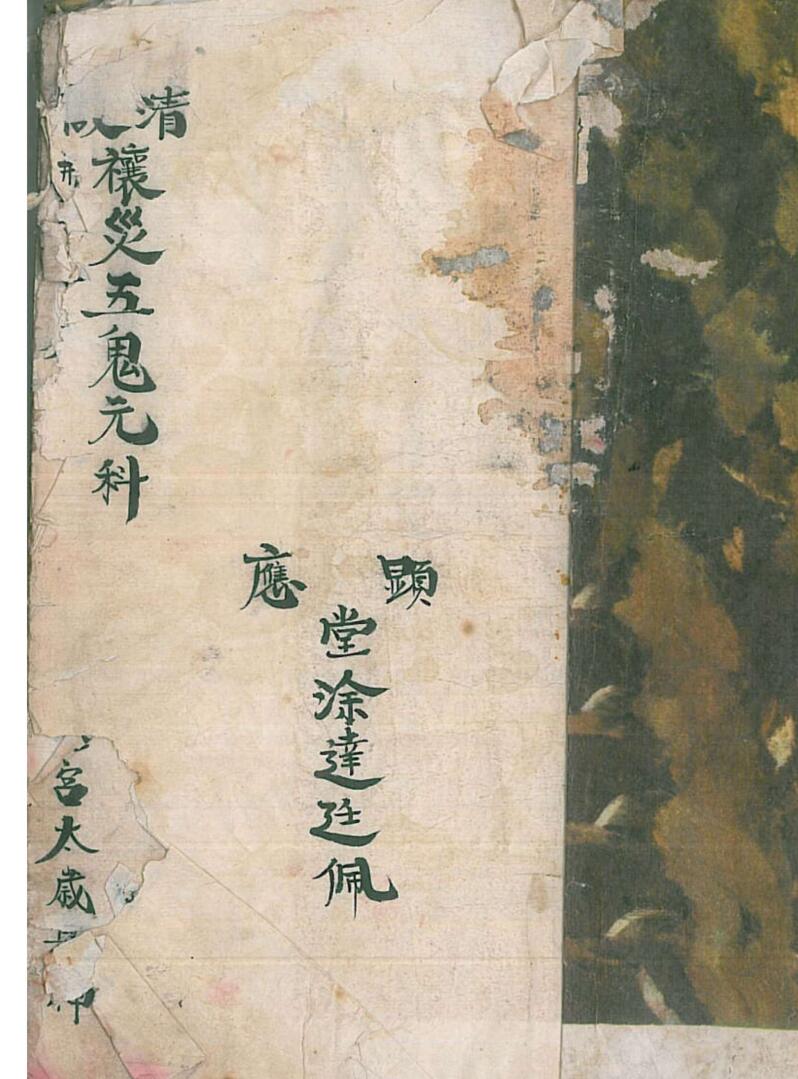 顯應
堂涂達廷佩
清
禳災五鬼元科
宮太歲